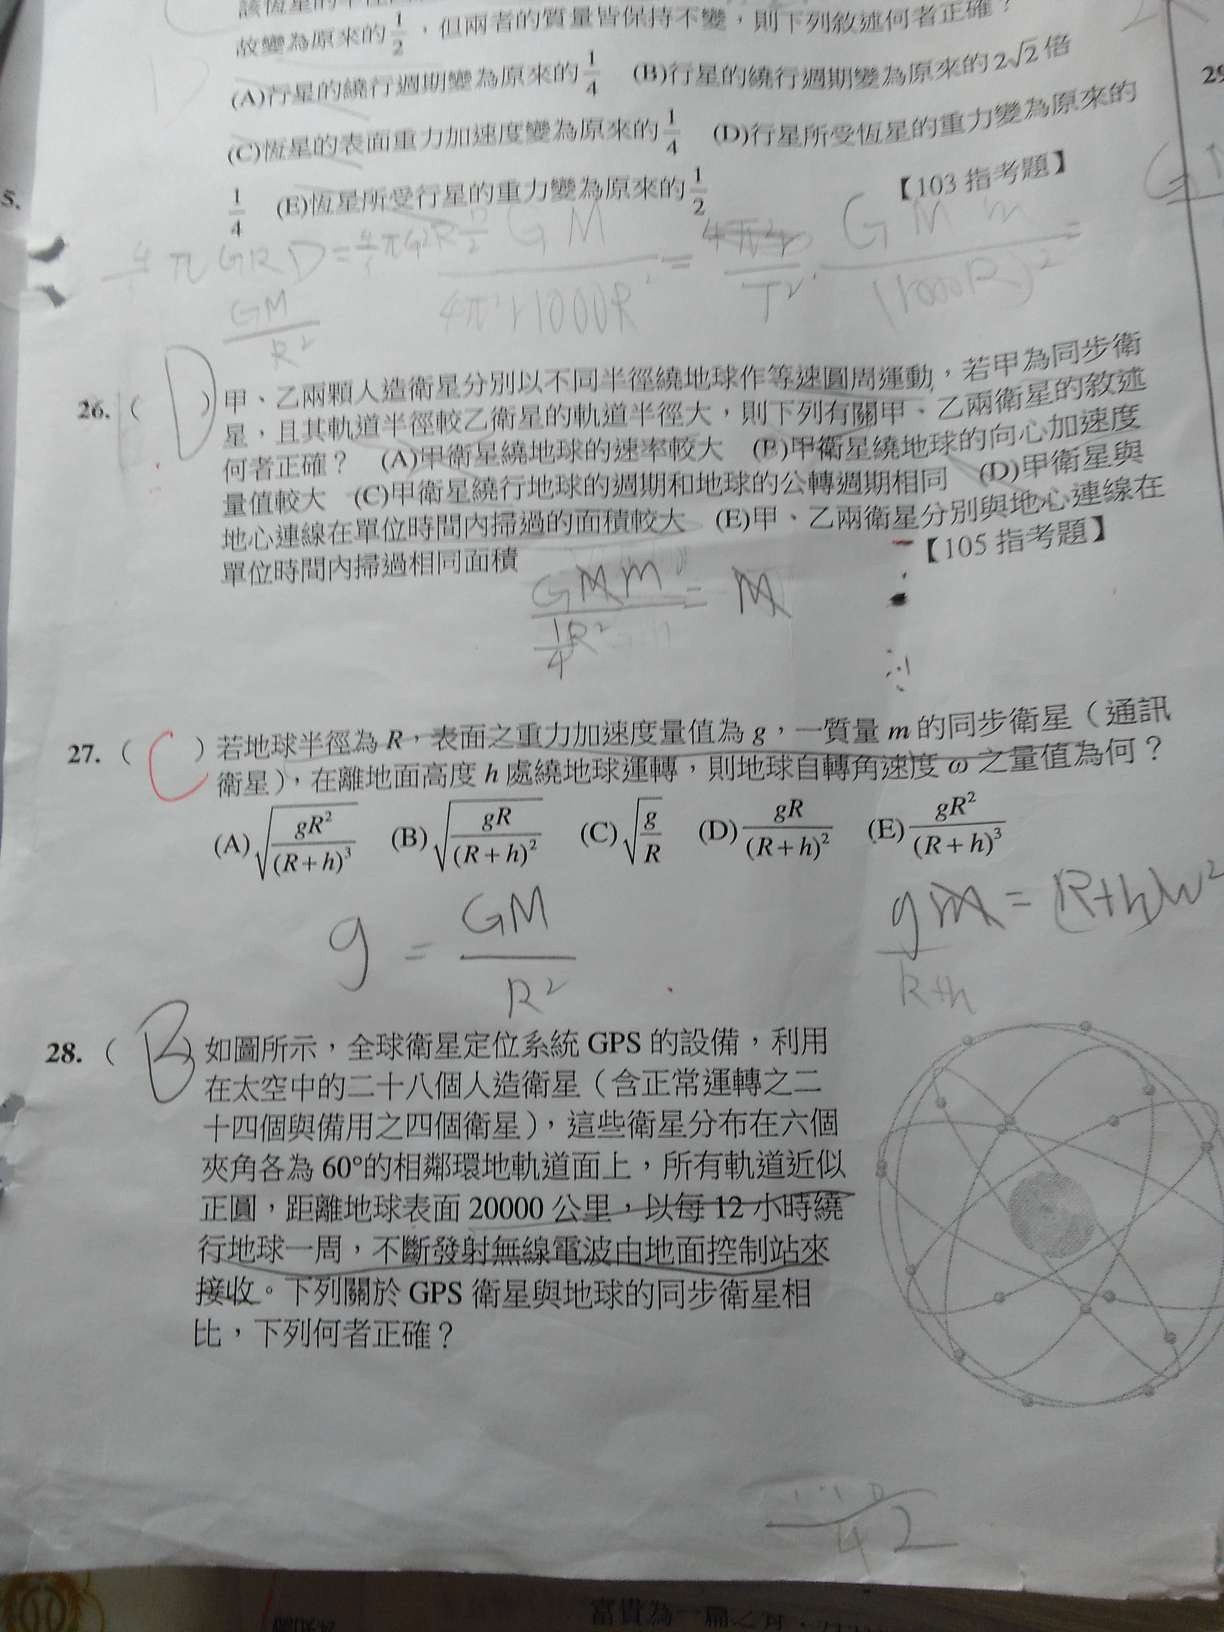 故變為原來的 1/2，但兩者的質量皆保持不變，則下列敘述何者正確？
(A)行星的繞行週期變為原來的 1/4 (B)行星的繞行週期變為原來的 2√2 倍
(C)恆星的表面重力加速度變為原來的 1/4 (D)行星所受恆星的重力變為原來的
1/4 (E)恆星所受行星的重力變為原來的 1/2 【103 指考題】
29
5.
GM/R²
26. ( D ) 甲、乙兩顆人造衛星分別以不同半徑繞地球作等速圓周運動，若甲為同步衛
星，且其軌道半徑較乙衛星的軌道半徑大，則下列有關甲、乙兩衛星的敘述
何者正確？ (A)甲衛星繞地球的速率較大 (B)甲衛星繞地球的向心加速度
量值較大 (C)甲衛星繞行地球的週期和地球的公轉週期相同 (D)甲衛星與
地心連線在單位時間內掃過的面積較大 (E)甲、乙兩衛星分別與地心連線在
單位時間內掃過相同面積 【105 指考題】
27. ( C ) 若地球半徑為 R，表面之重力加速度量值為 g，一質量 m 的同步衛星（通訊
衛星），在離地面高度 h 處繞地球運轉，則地球自轉角速度 ω 之量值為何？
(A) √(gR²/(R+h)³) (B) √(gR/(R+h)²) (C) √(g/R) (D) gR/(R+h)² (E) gR²/(R+h)³
g = GM/R²
gm/R+h = (R+h)w²
28. ( B ) 如圖所示，全球衛星定位系統 GPS 的設備，利用
在太空中的二十八個人造衛星（含正常運轉之二
十四個與備用之四個衛星），這些衛星分布在六個
夾角各為 60°的相鄰環地軌道面上，所有軌道近似
正圓，距離地球表面 20000 公里，以每 12 小時繞
行地球一周，不斷發射無線電波由地面控制站來
接收。下列關於 GPS 衛星與地球的同步衛星相
比，下列何者正確？
42